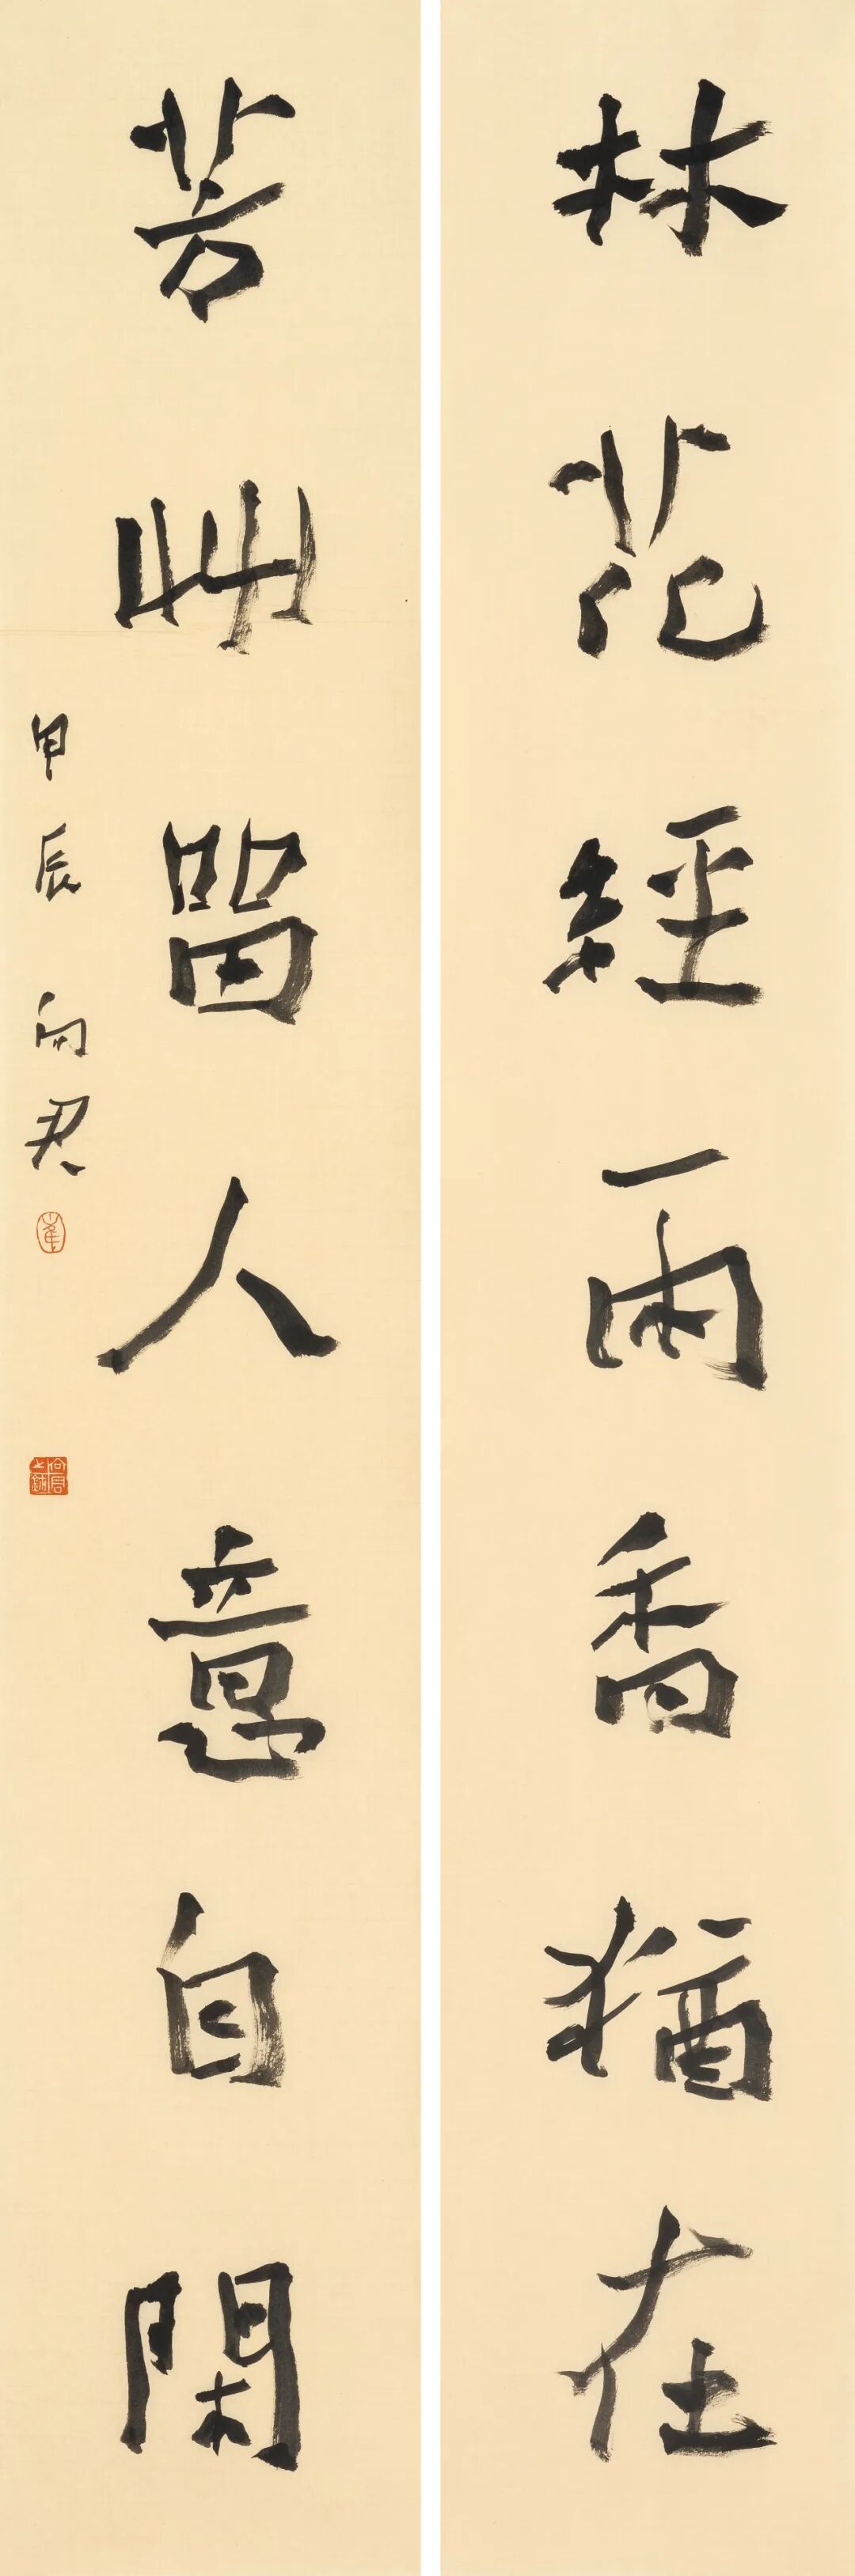 林花經雨香猶在
芳艸留人意自閑
甲辰向君